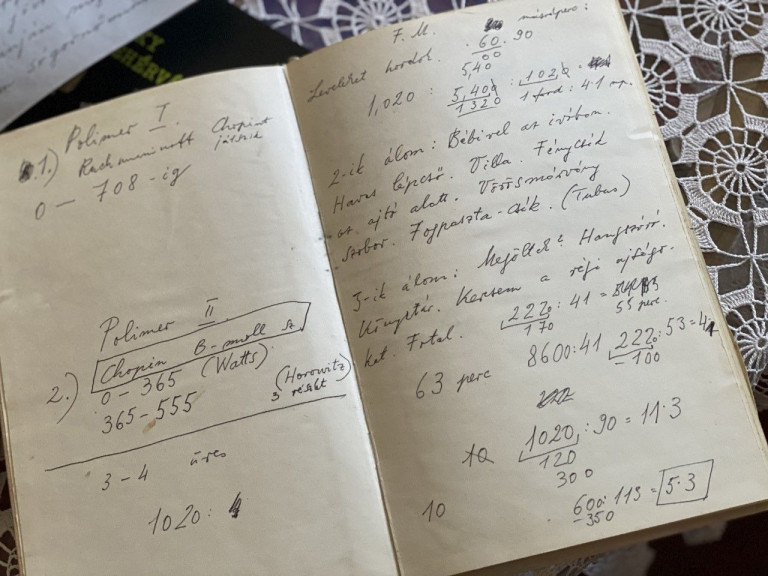 KY
1.) Polimer I.
Rachmaninoff Chopint
játszik
0 — 708-ig
Polimer II.
Chopin B-moll sz.
2.) 0 – 365 (Watts)
365 – 555 (Horowitz)
3 részlet
3 – 4 üres
1020 :
F. M. másodperc:
60.90
00
5,40
Leveleket hordok.
1,020 : 5,400 : 1020
1320 1 ford : 4.1 mp.
2-ik álom : Bébivel az ivóban.
Havas lépcső. Villa. Fénycsík
az ajtó alatt. Vörösmárvány
szobor. Fogpaszta-csík. (Tubus)
3-ik álom : Megöltek? Hangszóró.
Könyvtár. Keresem a régi ujságo-
kat. Fotal. 222 : 41 =
170 55 perc.
63 perc 8600:41 222:53=4
-100
10 1020 : 90 = 11.3
120
300
10 600:113 = 5.3
-350